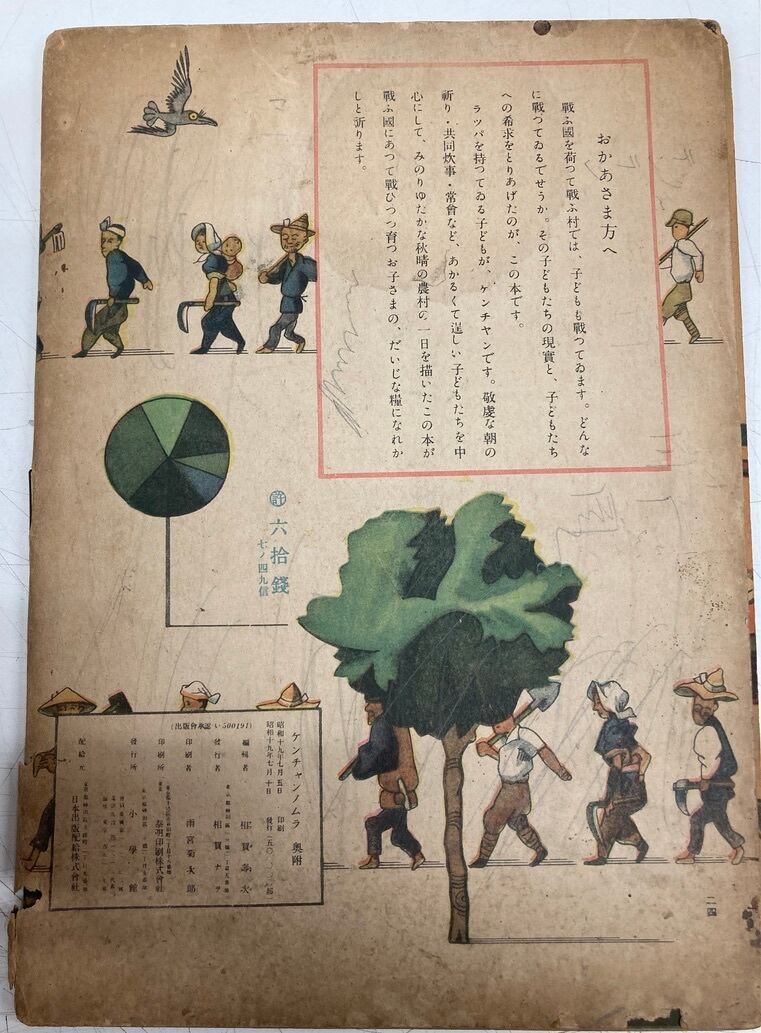 おかあさま方へ
戰ふ國を荷つて戰ふ村では、子どもも戰つてゐます。どんな
に戰つてゐるでせうか。その子どもたちの現實と、子どもたち
への希求をとりあげたのが、この本です。
ラツパを持つてゐる子どもが、ケンチヤンです。敬虔な朝の
祈り・共同炊事・常會など、あかるくて逞しい子どもたちを中
心にして、みのりゆたかな秋晴の農村の一日を描いたこの本が
戰ふ國にあつて戰ひつつ育つお子さまの、だいじな糧になれか
しと祈ります。
㊢六拾錢
七ノ四九信
ケンチャンノムラ 奥附
昭和十九年七月五日 印刷
昭和十九年七月十日 發行
編輯者 相賀
發行者 相賀ナヲ
印刷者 雨宮菊太郎
印刷所 泰明印刷株式會社
發行所 小學館
配給元 日本出版配給株式會社
(出版會承認い500191)
二四